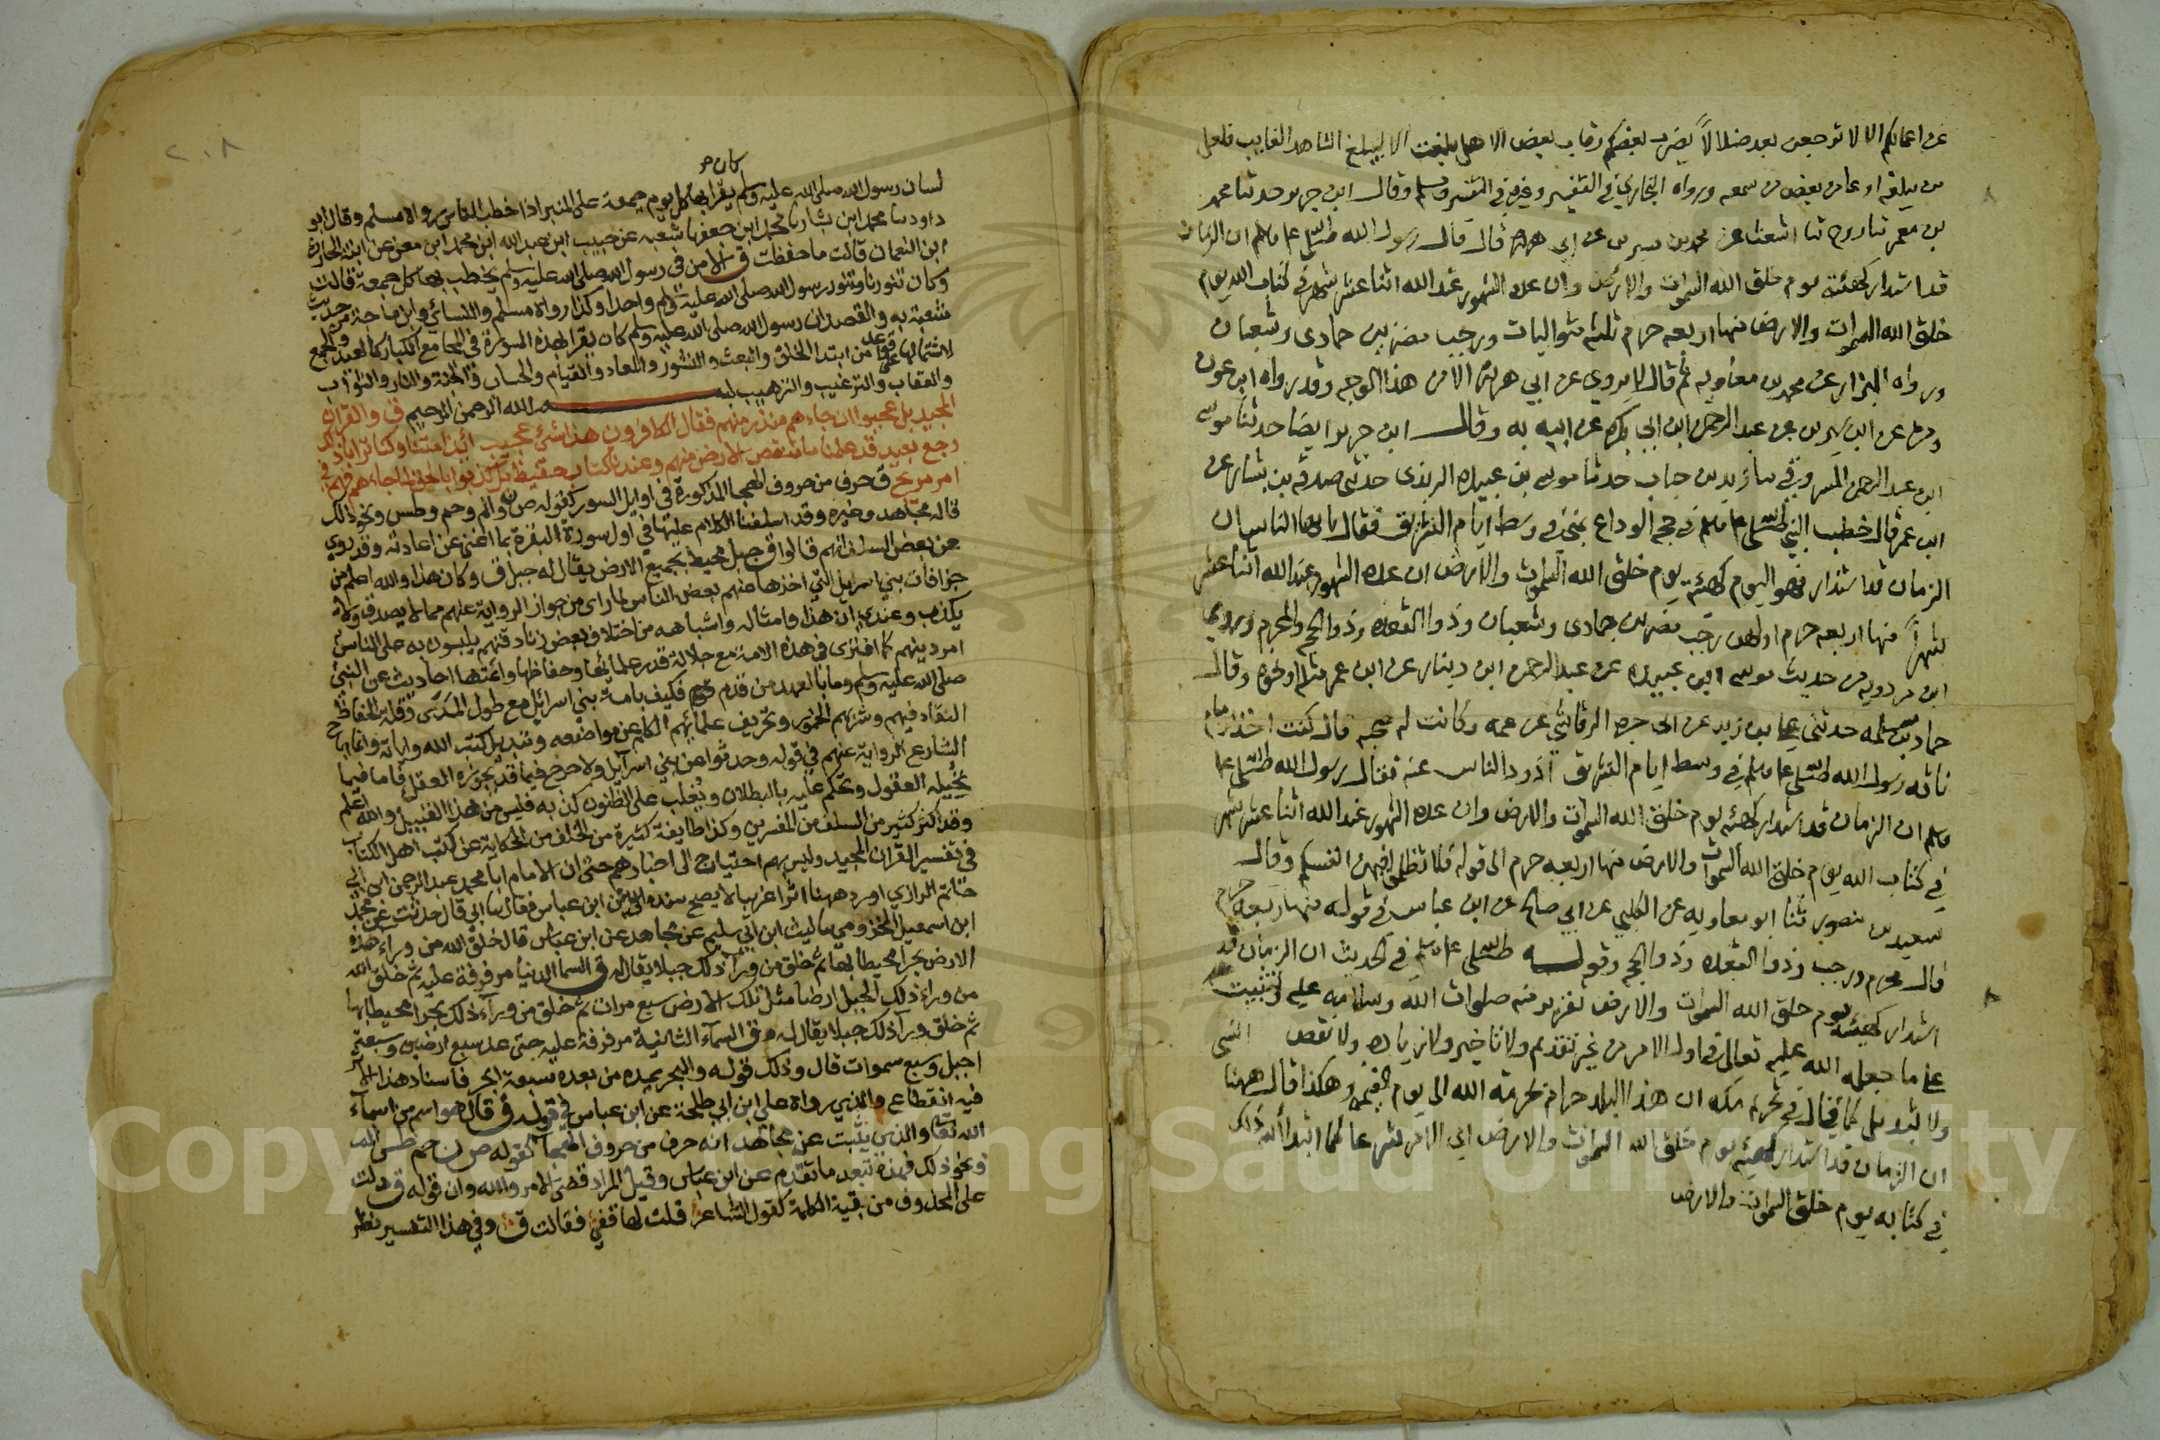 عن اعمالكم الا لا ترجعن بعد ضلالاً يضرب بعضكم رقاب بعض الا هل بلغت الا ليبلغ الشاهد الغايب فلعل
من يبلغه اوعا من بعض من سمعه ورواه البخاري في التفسير وغيره ومسلم وقال ابن جرير حدثنا محمد
بن معمر ثنا روح ثنا اشعث عن محمد بن سيرين عن ابي هريرة قال قال رسول الله صلى الله عليه وسلم ان الزمان
قد استدار كهيئته يوم خلق الله السموات والارض وان عدة الشهور عند الله اثنا عشر شهرا في كتاب الله يوم
خلق الله السموات والارض منها اربعه حرم ثلثه متواليات ورجب مضر بين جمادى وشعبان
ورواه البزار عن محمد بن معمر به ثم قال لا يروي عن ابي هريرة الا من هذا الوجه وقد رواه ابن عون
وقرة عن ابن سيرين عن عبد الرحمن ابن ابي بكره عن ابيه به وقال ابن جرير ايضا حدثنا موسى
ابن عبد الرحمن المسروقي ثنا زيد بن حباب حدثنا موسى بن عبيده الربذي حدثني صدقه بن يسار عن
ابن عمر قال خطب النبي صلى الله عليه وسلم في حجه الوداع بمنى في وسط ايام التشريق فقال يا ايها الناس ان
الزمان قد استدار فهو اليوم كهيئته يوم خلق الله السموات والارض ان عدة الشهور عند الله اثنا عشر
شهراً منها اربعه حرم اولهن رجب مضر بين جمادى وشعبان وذوا القعده وذوا الحجه والمحرم وروي
ابن مردويه من حديث موسى ابن عبيده عن عبد الله ابن دينار عن ابن عمر مثله او نحوه وقال
حماد بن سلمه حدثني علي بن زيد عن ابي حره الرقاشي عن عمه وكانت له صحبه قال كنت اخذ بزمام
ناقه رسول الله صلى الله عليه وسلم في وسط ايام التشريق اذود الناس عنه فقال رسول الله صلى الله عليه
وسلم ان الزمان قد استدار كهيئته يوم خلق الله السموات والارض وان عدة الشهور عند الله اثنا عشر شهرا
في كتاب الله يوم خلق الله السموات والارض منها اربعه حرم الى قوله فلا تظلموا فيهن انفسكم وقال
سعيد بن منصور ثنا ابو معاويه عن الكلبي عن ابي صالح عن ابن عباس في قوله منها اربعه حرم
قال محرم ورجب وذوا القعده وذوا الحجه وقوله صلى الله عليه وسلم في الحديث ان الزمان قد
استدار كهيئته يوم خلق الله السموات والارض تقرير منه صلوات الله وسلامه عليه وتثبيت
على ما جعله الله عليه تعالى في اول الامر من غير تقدم ولا تاخير ولا زياده ولا نقص النسي
ولا تبديل كما قال في تحريم مكه ان هذا البلد حرام بحرمة الله الى يوم القيمه وهكذا قال ههنا
ان الزمان قد استدار كهيئته يوم خلق الله السموات والارض اي الامر شرعا كما ابتدأ الله ذلك
في كتابه يوم خلق السموات والارض
٢٠٨
كان م
لسان رسول الله صلى الله عليه وسلم يقرا بها كل يوم جمعة على المنبر اذا خطب الناس رواه مسلم وقال ابو
داود ثنا محمد ابن بشار ثنا محمد ابن جعفر ثنا شعبه عن حبيب ابن عبد الله ابن محمد ابن معن عن ابنة الحارث
ابن النعمان قالت ما حفظت ق الا من في رسول الله صلى الله عليه وسلم يخطب بها كل جمعة قالت
وكان تنورنا وتنور رسول الله صلى الله عليه وسلم واحدا وكذا رواه مسلم والنسائي وابن ماجة من حديث
شعبة به والقصد ان رسول الله صلى الله عليه وسلم كان يقرا بهذه السورة في المجامع الكبار كالعيد والجمع
لاشتمالها على من ابتدا الخلق والبعث والنشور والمعاد والقيام والحساب والجنة والنار والثواب
والعقاب والترغيب والترهيب بسم الله الرحمن الرحيم ق والقرآن
المجيد بل عجبوا ان جاءهم منذر منهم فقال الكافرون هذا شئ عجيب ائذا متنا وكنا ترابا ذلك
رجع بعيد قد علمنا ما تنقص الارض منهم وعندنا كتاب حفيظ بل كذبوا بالحق لما جاءهم فهم في
امر مريج ق حرف من حروف الهجا المذكورة في اوايل السور كقوله ص ون والم وحم وطس ونحو ذالك
قاله مجاهد وغيره وقد اسلفنا الكلام عليها في اول سورة البقرة بما اغنى عن اعادته وقد روي
عن بعض السلف انهم قالوا ق جبل محيط بجميع الارض يقال له جبل ق وكان هذا والله اعلم من
خرافات بني اسرايل التي اخذها عنهم بعض الناس لما راى من جواز الرواية عنهم مما لا يصدق ولا
يكذب وعندي ان هذا وامثاله واشباهه من اختلاق بعض زنادقتهم يلبسون به على الناس
امر دينهم كما افترى في هذه الامة مع جلالة قدر علمائها وحفاظها وائمتها احاديث عن النبي
صلى الله عليه وسلم وما بالعهد من قدم فكيف بامة بني اسرائيل مع طول المدى وقلة الحفاظ
النقاد فيهم وشربهم الخمور وتحريف علمائهم الكلم عن مواضعه وتبديل كتب الله واياته وانما اباح
الشارع الرواية عنهم في قوله وحدثوا عن بني اسرآيل ولا حرج فيما قد يجوزه العقل فاما فيما
تحيله العقول وتحكم عليه بالبطلان ويغلب على الظنون كذبه فليس من هذا القبيل والله اعلم
وقد اكثر كثير من السلف من المفسرين وكذا طايفة كثيرة من الخلف من الحكاية عن كتب اهل الكتاب
في تفسير القرآن المجيد وليس بهم احتياج الى اخبارهم حتى ان الامام ابا محمد عبد الرحمن ابن ابي
حاتم الرازي اورد ههنا اثرا غريبا لا يصح سنده عن ابن عباس فقال ثنا ابي قال حدثت عن محمد
ابن اسمعيل المخزومي ثنا ليث ابن ابي سليم عن مجاهد عن ابن عباس قال خلق الله من وراء هذه
الارض بحرا محيطا بها ثم خلق من ورآء ذلك جبلا يقال له ق السما الدنيا مرفرفة عليه ثم خلق الله
من وراء ذلك الجبل ارضا مثل تلك الارض سبع مرات ثم خلق من ورآء ذلك بحرا محيطا بها
ثم خلق من ورآ ذلك جبلا يقال له ق السمآء الثانية مرفرفة عليه حتى عد سبع ارضين وسبعة
اجبل وسبع سموات قال وذلك قوله والبحر يمده من بعده سبعة ابحر فاسناد هذا الاثر
فيه انقطاع والذي رواه علي ابن ابي طلحة عن ابن عباس في قوله ق قال هو اسم من اسمآء
الله تعالى والذي يثبت عن مجاهد انه حرف من حروف الهجا كقوله ص ن حم طس الم
ونحو ذلك فهذه تبعد ما تقدم عن ابن عباس وقيل المراد قضى الامر والله وان قوله ق دلت
على المحذوف من بقية الكلمة كقول الشاعر قلت لها قفي فقالت ق وفي هذا التفسير نظر
Copy ng Saud University